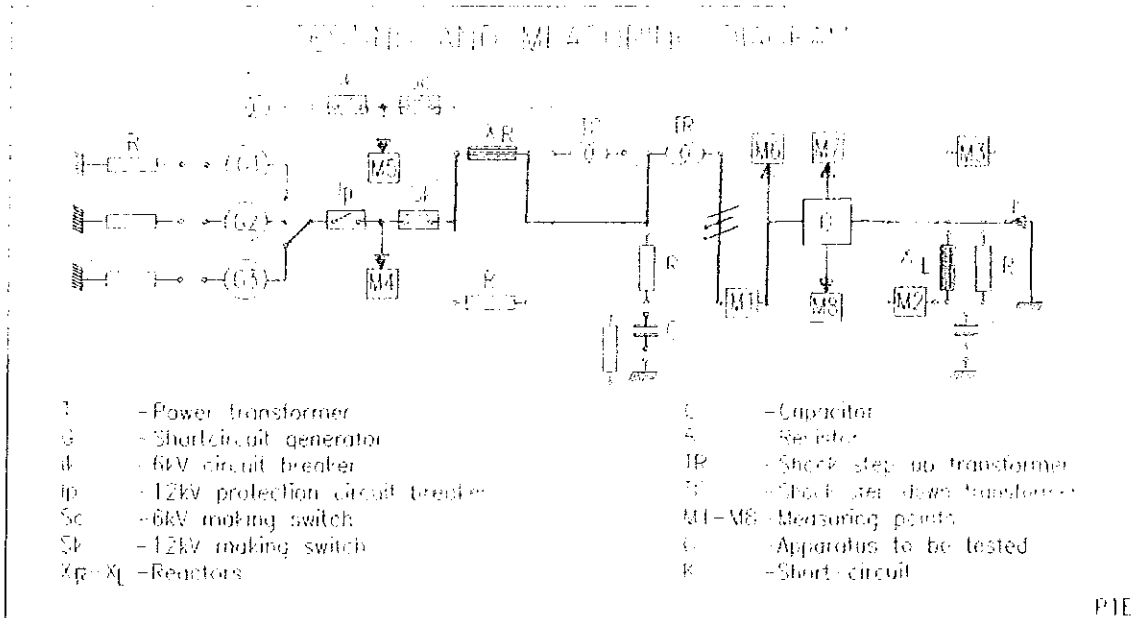 AND MEASURING DIAGRAM
R
XR
TR
M6 M7 M3
M5
G1
Ip
Sk
G2
G3
M4
R
R
C
M1
M8
XL
R
M2
T - Power transformer
G - Shortcircuit generator
- 6kV circuit breaker
Ip - 12kV protection circuit breaker
Sc - 6kV making switch
Sk - 12kV making switch
XR-XL - Reactors
C - Capacitor
- Resistor
TR - Shock step up transformer
- Shock step down transformer
M1-M8 - Measuring points
- Apparatus to be tested
K - Short-circuit
P1E